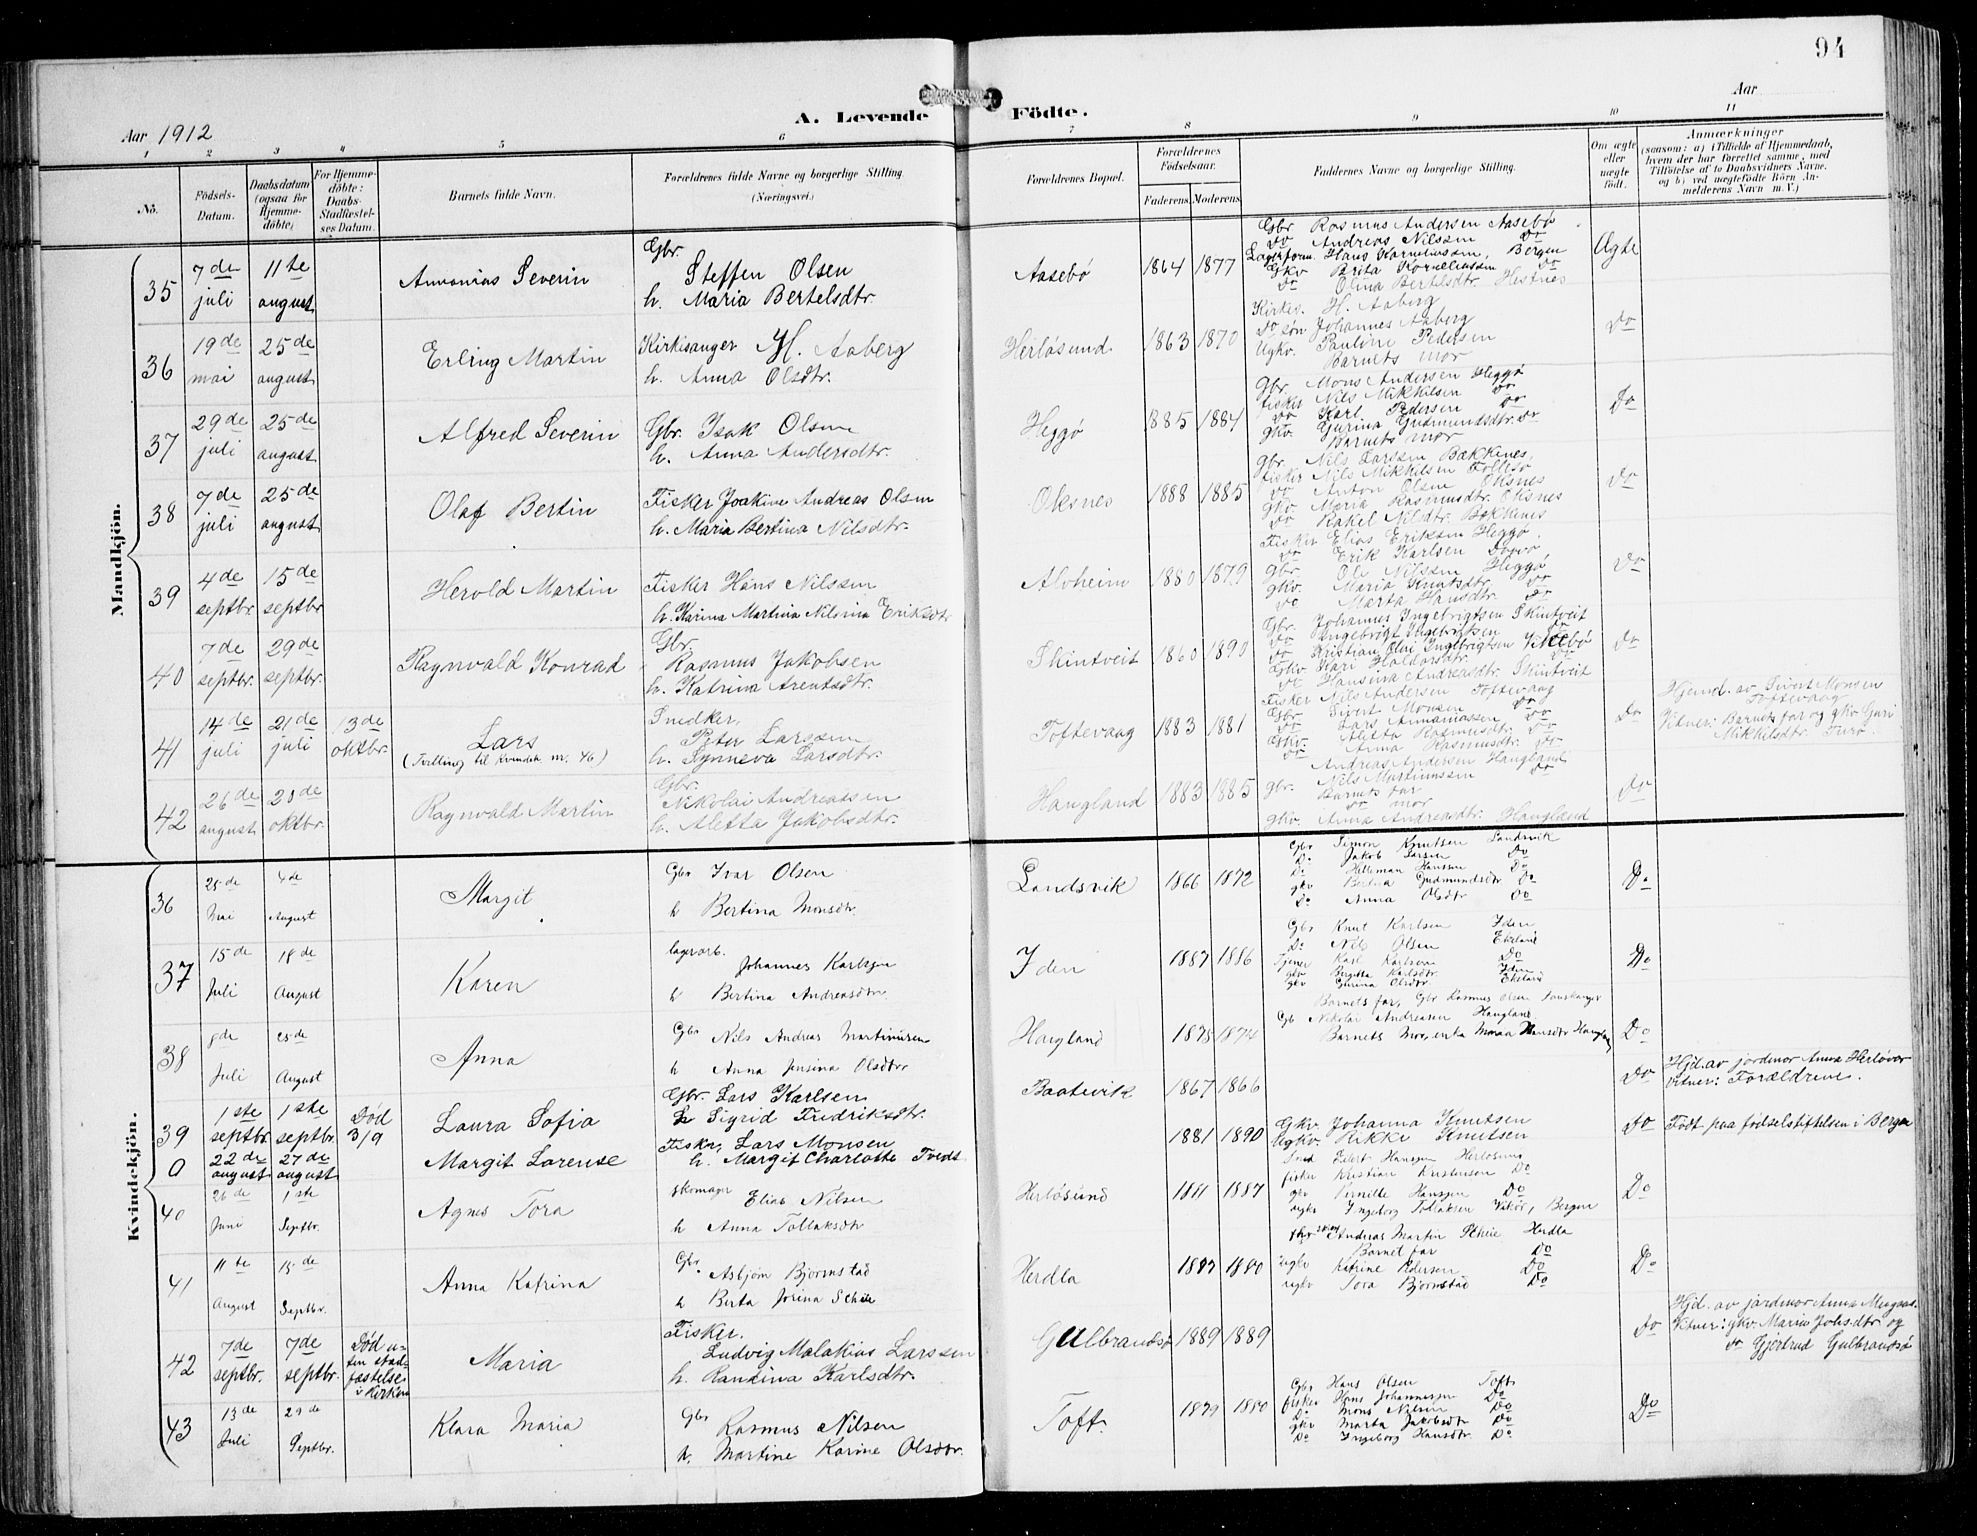 94
A. Levende Födte.
Aar 1912
Aar
1 2 3 4 5 6 7 8 9 10 11
Nō.
Födsels-Datum.
Daabsdatum (ogsaa for Hjemme-döbte)
For Hjemme-döbte: Daabs-Stadfæstel-ses Datum.
Barnets fulde Navn.
Forældrenes fulde Navne og borgerlige Stilling. (Næringsvei.)
Forældrenes Bopæl.
Forældrenes Födselsaar.
Faderens Moderens
Faddernes Navne og borgerlige Stilling.
Om ægte eller uægte født.
Anmærkninger
(saasom: a) i Tilfælde af Hjemmedaab,
hvem der har forrettet samme, med
Tilføielse af to Daabsvidners Navne,
og b) ved uægtefödte Börn An-
melderens Navn m. V.)
Mandkjön.
35 7de juli 11te august Severin Gbr. Steffen Olsen h. Maria Bertelsdtr. Aasebö 1864 1877 Ægte
Gbr Rasmus Andersen Aasebö
do Andreas Nilsen do
Hans Korneliussen, Bergen
Gkv Brita Korneliussen do
do Olina Bertelsdtr. Hestnes
36 19de mai 25de august Erling Martin Kirkesanger H. Aaberg h. Anna Olsdtr. Herløsund 1863 1870 Do
Kirkes. H. Aaberg
Do søn Johannes Aaberg
Ugkv. Pauline Pedersen
Barnets mor
37 29de juli 25de august Alfred Severin Gbr. Isak Olsen h. Anna Andersdtr. Heggö 1885 1884 Do
Gbr Mons Andersen Heggö
Fisker Nils Mikkelsen do
do Karl Pedersen do
gkv. Gurina Gudmundsdtr. do
Barnets mor
38 7de juli 25de august Olaf Bertin Fisker Joakim Andreas Olsen h. Maria Bertina Nilsdtr. Oksnes 1888 1885 Do
gbr. Nils Larssen Bakkenes,
Fisker Nils Mikkelsen Follesö
do Anton Olsen Oksnes
gkv. Maria Rasmusdtr. Oksnes
do Rakel Nilsdtr. Bakkenes
39 4de septbr 15de septbr Herold Martin Fisker Hans Nilssen h. Karina Martina Nilsina Eriksdtr Alvheim 1880 1879 Do
Fisker Elias Eriksen Heggö.
do Erik Karlsen
Gbr Ole Nilssen Heggö
gkv. Maria Knutsdtr. do
do Marta Hansdtr. do
40 7de septbr. 29de septbr. Ragnvald Konrad Gbr. Rasmus Jakobsen h. Katrina Arentsdtr. Skintveit 1860 1890 Do
Gbr. Johannes Ingebrigtsen Skintveit
do Ingebrigt Ingebrigtsen do
do Kristian Olai Ingebrigtsen
Gkv Kari Haldorsdtr.
do Hansina Andreasdtr. Skintveit
41 14de juli 21de juli 13de oktbr. Lars
(Tvilling til Kvindek. nr. 46)
Snedker, Peter Larssen h. Synneva Larsdtr. Toftevaag 1883 1881 Do
Fisker Nils Andersen Toftevaag
Gbr Sivert Monsen do
do Lars do
Gkv. Aletta Rasmusdtr. do
do Anna Rasmusdtr. do
Hjemd. av Sivert Monsen
Toftevaag
Vitner: Barnets far og gkv Guri
Mikkelsdtr. Turö.
42 26de august 20de oktbr. Ragnvald Martin Gbr. Nikolai Andreassen h. Aletta Jakobsdtr. Haugland 1883 1885 Do
Andreas Andersen Haugland
gbr. Nils Martinussen do
Barnets far
do mor
gkv. Anna Andreasdtr. Haugland
Kvindekjön.
36 25de Mai 4de August Margit Gbr Ivar Olsen h Bertina Monsdtr. Landsvik 1866 1872 Do
Gbr Simon Knutsen Landsvik
Do Jakob Larsen Do
Do Helleman Hansen Do
gkv Bertea Gudmundsdtr Do
Do Anna Olsdtr Do
37 15de Juli 18de August Karen lagerarb. Johannes Karlsen h Bertina Andreasdtr Iden 1887 1886 Do
Gbr Knut Karlsen Iden
Do Nils Olsen Ekeland
Tjener Karl Karlsen Do
gkv Bergitta Karlsdtr. Iden
gkv Gurina Olsdtr. Ekeland
38 8de Juli 25de August Anna Gbr Nils Andreas Martinusen h Anna Jensina Olsdtr Haugland 1875 1874 Do
Barnets far, Gbr Rasmus Olsen
Gb Nikolai Andreasen Haugland
Barnets Mor, enke Hansdtr Haugland
39 1ste septbr. 1ste septbr. Død 3/9 Laura Sofia Gbr. Lars Karlsen h Sigrid Fredriksdtr. Baatevik 1867 1866 Do
Hjd. av jordmor Anna Herløver
Vitner: Forældrene.
0 22de august 27de august Margit Lorense Fisker, Lars Monsen h. Margit Charlotte Tvedt 1881 1890 Do
Gkv. Johanna Knutsen
Ugkv. Rikke Knutsen
Født paa fødselstiftelsen i Bergen
40 26de Juni 1ste Septbr. Agnes Tora skomager Elias Nilsen h Anna Tollaksdtr Herløsund 1881 1887 Do
Eilert Hansen Herløsund
fisker Kristian Kristensen Do
gkv Pernille Hansen Do
ugkv Ingeborg Tollaksen Bergen
41 11te August 15de Septbr. Anna Katrina Gbr. Asbjørn Bjørnstad h Berta Jorina Scheie Herdla 1887 1880 Do
Andreas Martin Scheie Herdla
Barnet far Do
ugkv Katrine Pedersen Do
ugkv Tora Bjørnstad Do
42 7de septbr. 7de septbr. Død u-ten stad-fæstelse i kirken Maria Fisker. Ludvig Malakias Larssen h. Rantina Karlsdtr. Gulbrandsø 1889 1889 Do
Hjd. av jordmor Anna
Vitner: gkv. Maria Johsdtr og
do Gjertrud Gulbrandsø
43 13de Juli 29de Septbr. Klara Maria Gbr Rasmus Nilsen h. Martine Karine Olsdtr. Toft. 1879 1880 Do
Gbr Hans Olsen Toft
fisker Hans Johannesen Do
Do Mons Nilsen Do
gkv Marta Jakobsdtr Do
Do Ingeborg Hansdtr. Do